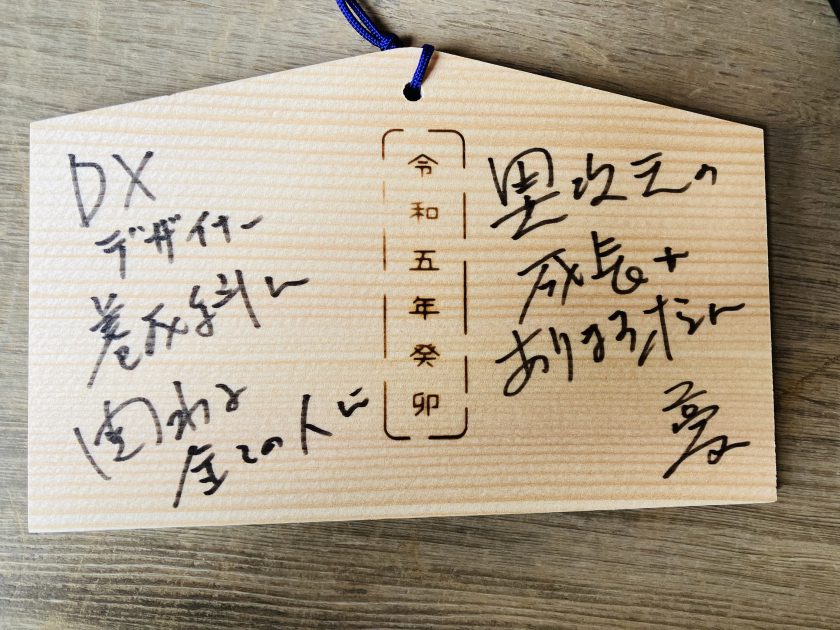 DX
デザイナー
養成科に
関わる
全ての人に
令和五年癸卯
異次元の
成長
ありますように